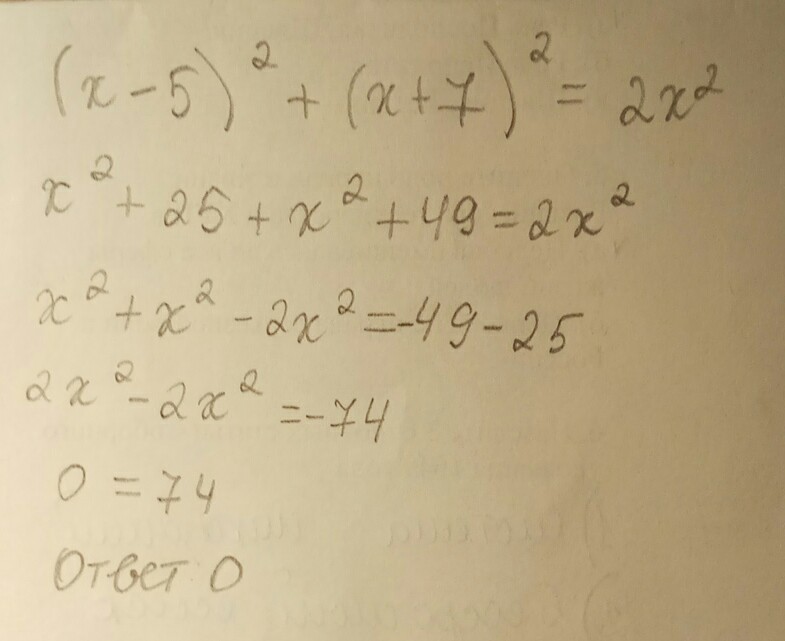 (x-5)² + (x+7)² = 2x²
x² + 25 + x² + 49 = 2x²
x² + x² - 2x² = -49 - 25
2x² - 2x² = -74
0 = 74
Ответ 0